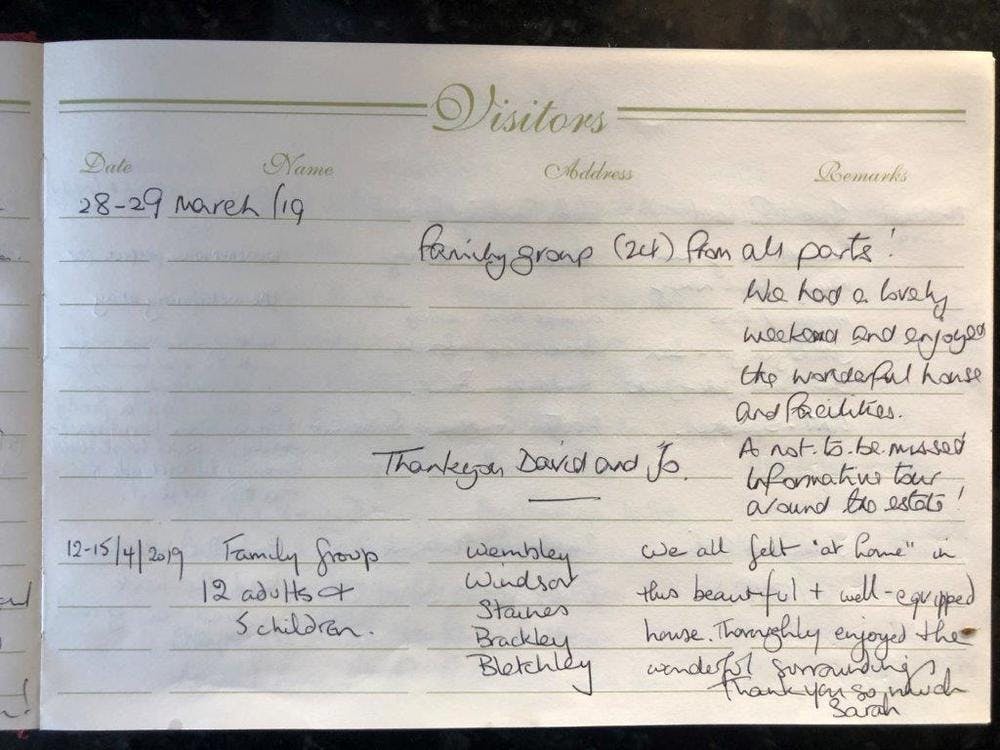 Visitors
Date Name Address Remarks
28-29 March /19
Family group (24) from all parts!
We had a lovely
weekend and enjoyed
the wonderful house
and facilities.
A not-to-be missed
Informative tour
around the estate!
Thankyou David and Jo.
12-15/4/2019 Family Group Wembley We all felt "at home" in
12 adults + Windsor this beautiful + well-equipped
5 children. Staines house. Thoroughly enjoyed the
Brackley wonderful surroundings
Bletchley Thank you so much
Sarah